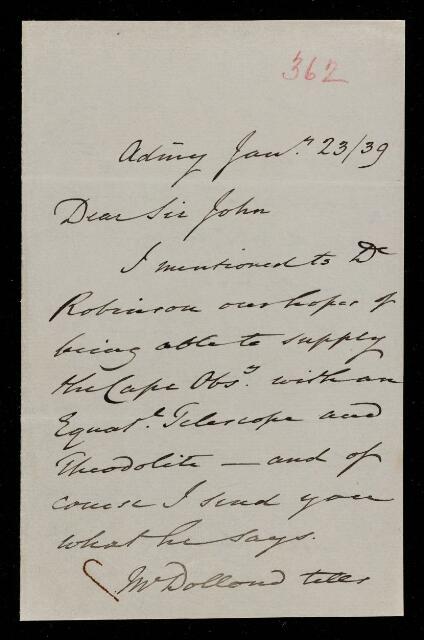 362
Admy Jany. 23/39
Dear Sir John
I mentioned to Dr
Robinson our hopes of
being able to supply
the Cape Obsy. with an
Equatl. Telescope and
Theodolite — and of
course I send you
what he says.
Mr Dollond tells